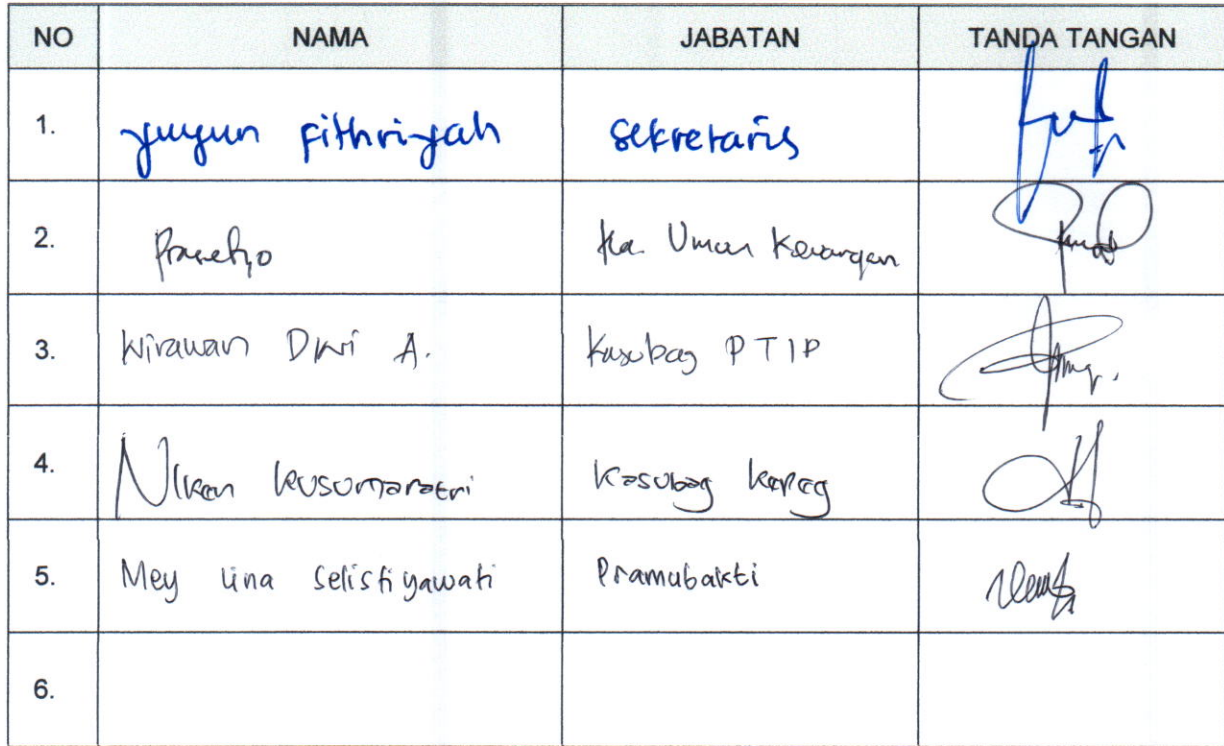 NO NAMA JABATAN TANDA TANGAN
1. Yuyun Fithriyah Sekretaris
2. Prasetyo Ka. Umum Keuangan
3. Wirawan Dwi A. Kasubag PTIP
4. Niken Kusumaratri Kasubag Kepeg
5. Mey Lina Selistiyawati Pramubakti
6.